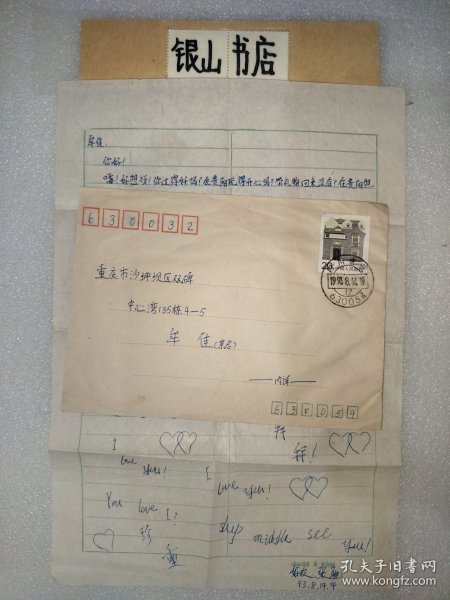 银山书店
牟佳:
你好!
嗨!好想呀!你过得好吗?在贵阳玩得开心吗?带礼物回来没有?在贵阳照
630032
重庆市沙坪坝区双碑
中心湾135栋4-5
牟佳(亲启)
内详
630034
20
1993.8.14.19
12
630034
拜
拜!
I
love you!
I
love you!
You love I?
珍
重
shep middle see you!
好友
93.8.14.午
孔夫子旧书网